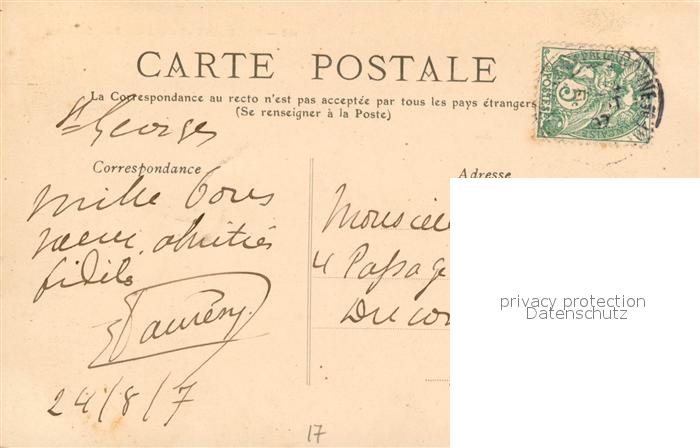 CARTE POSTALE
La Correspondance au recto n'est pas acceptée par tous les pays étrangers
(Se renseigner à la Poste)
St Georges
Correspondance
Adresse
Mille bons
vœux, amitiés
fidèles
24/8/7
Monsieu
4 Passage
Du
privacy protection
Datenschutz
17
5
POSTES